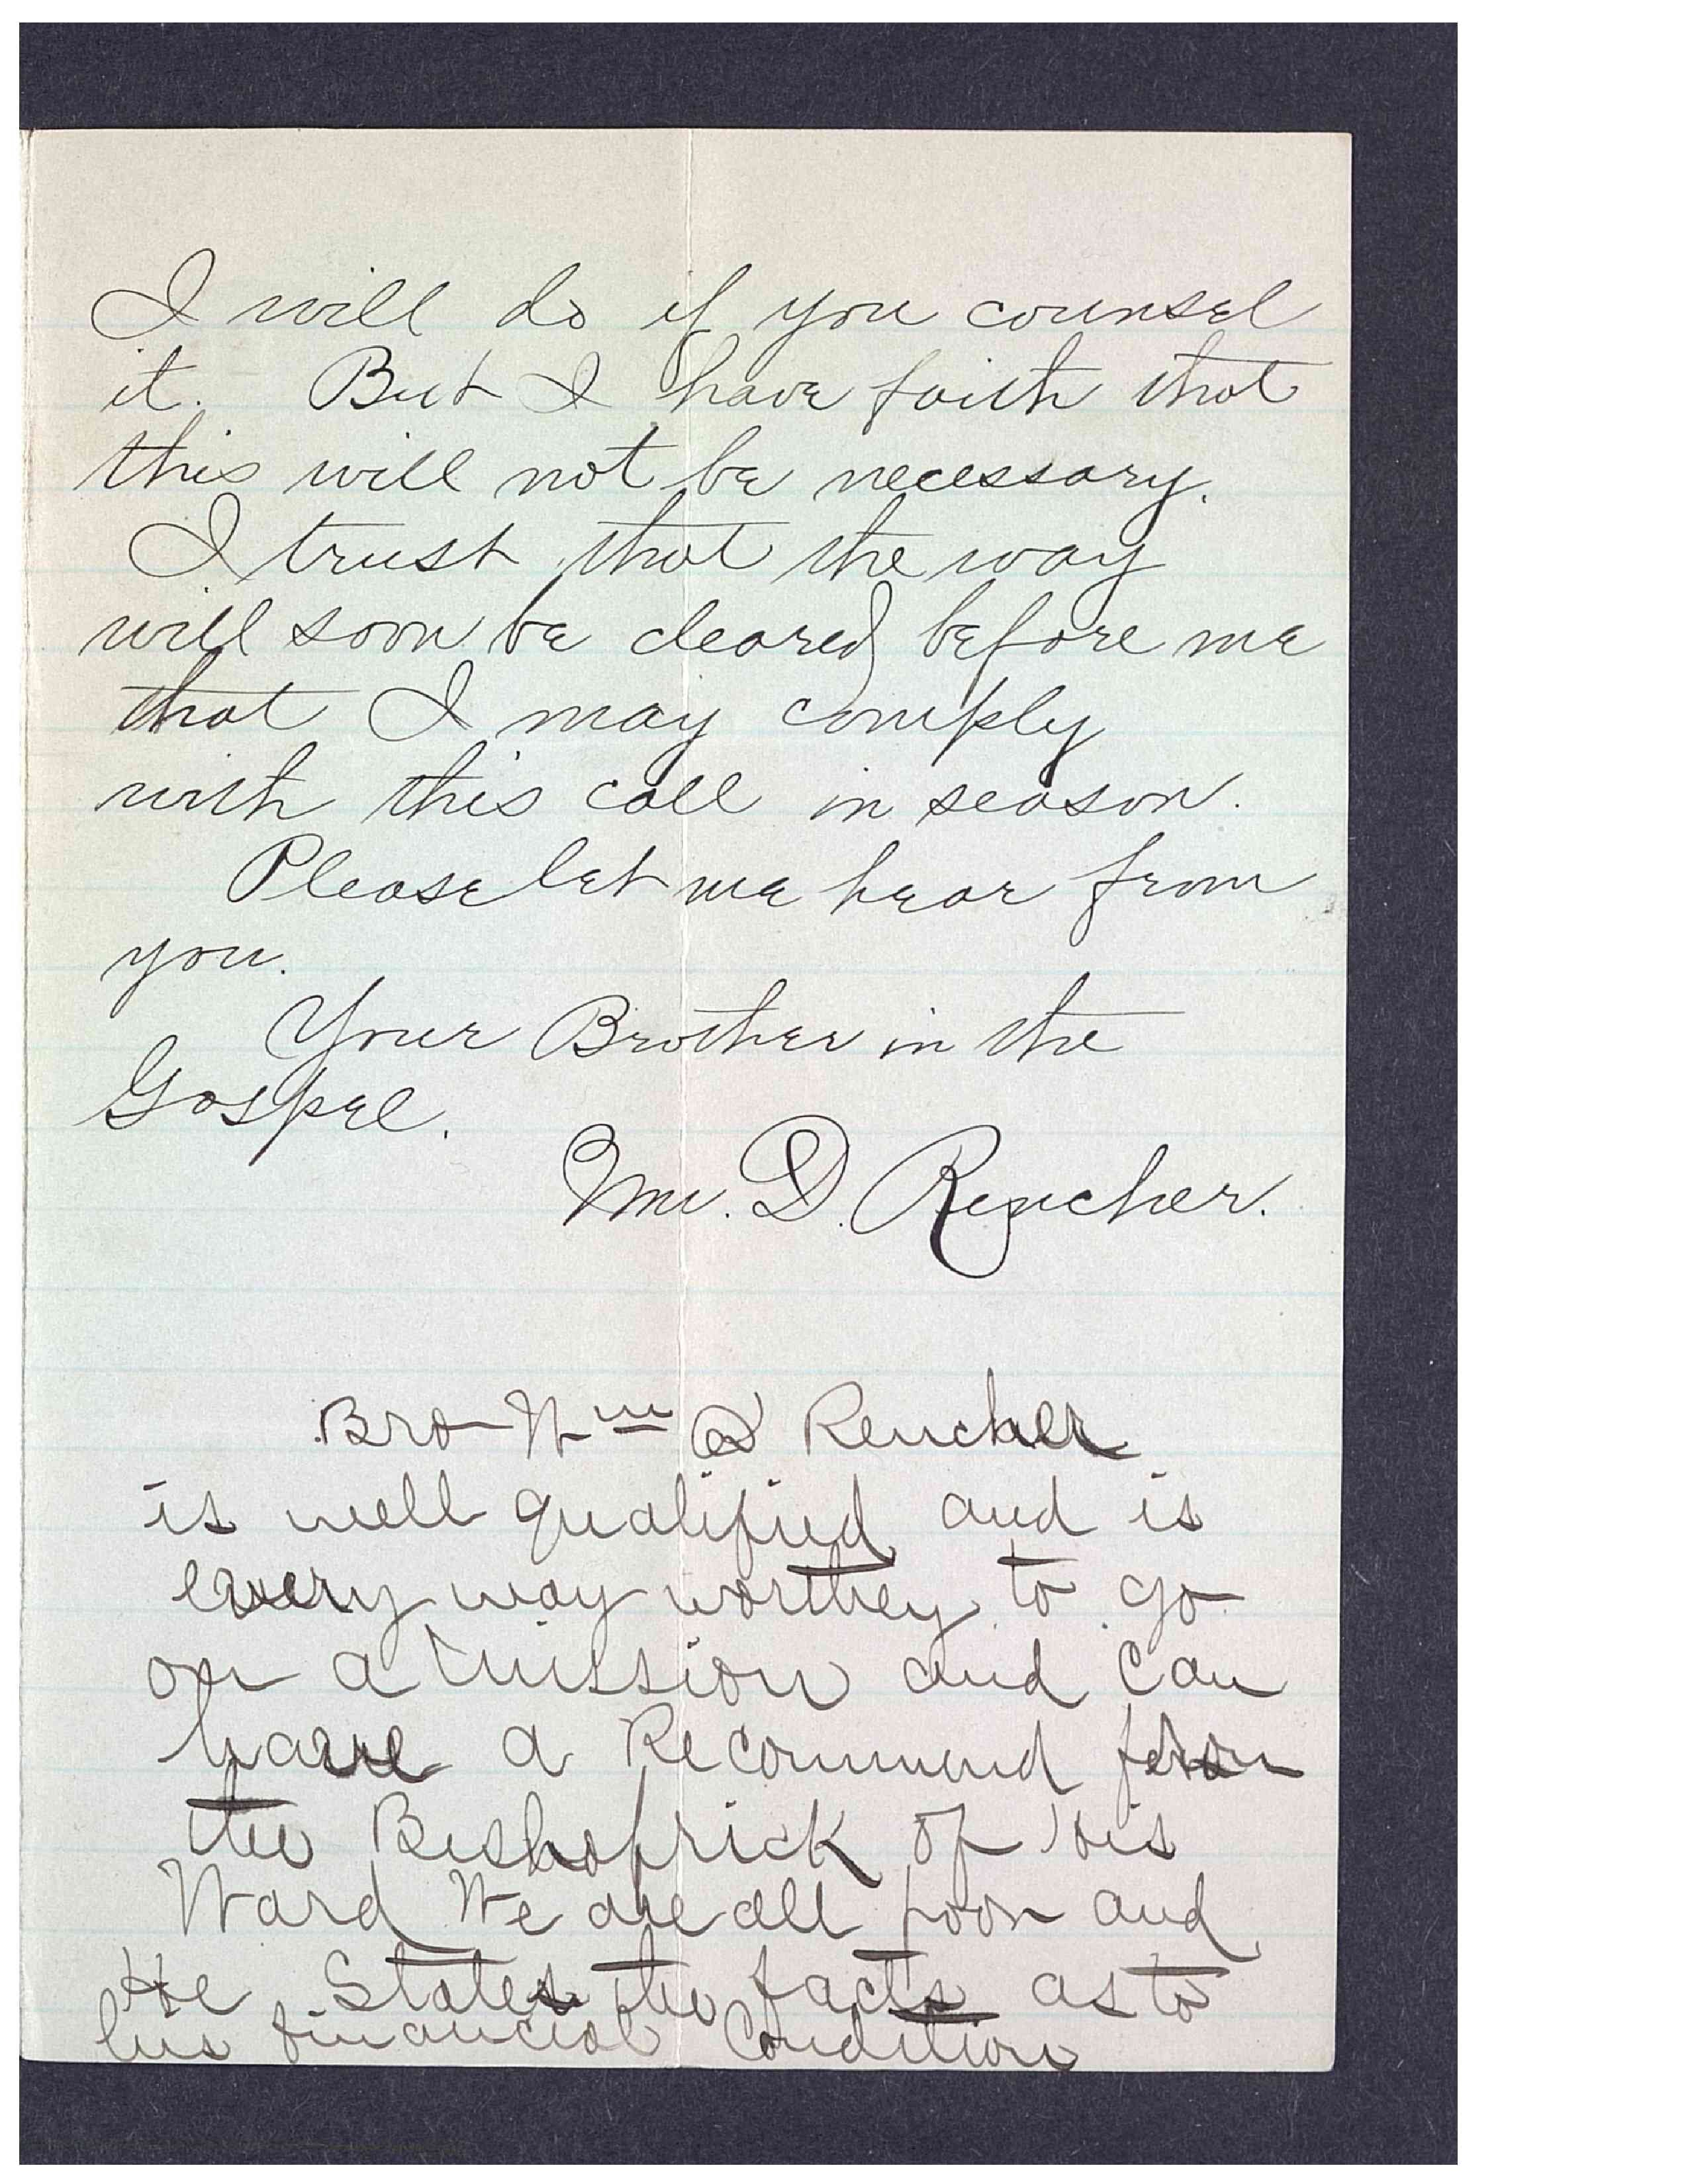 I will do if you counsel
it. But I have faith that
this will not be necessary.
I trust that the way
will soon be cleared before me
that I may comply
with this call in season.
Please let me hear from
you.
Your Brother in the
Gospel.
Wm. D. Rencher.
Bro Wm D Rencher
is well qualified and is
every way worthey to go
on a mission and can
have a Recommend from
the Bishoprick of his
Ward We are all poor and
He States the facts as to
his financial Condition